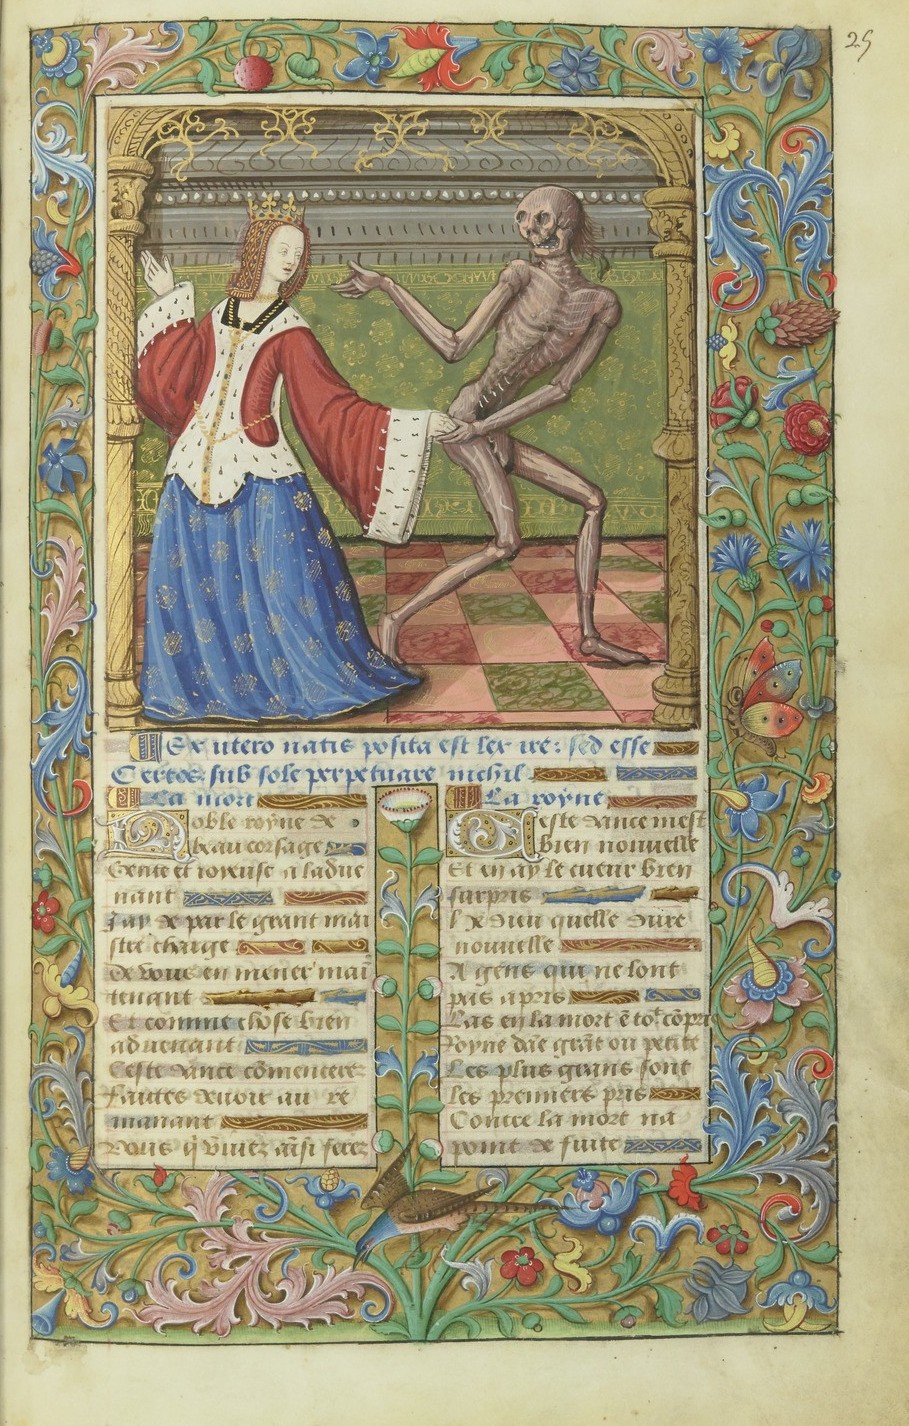 25
Ex utero natis posita est lex ire: sed esse
Certos: sub sole perpetuare nichil
La mort
Noble royne de
beau corsage
Gente et ioieuse a ladue
nant
Jay de par le grant mai
stre charge
de vous en mener mai
tenant
Et comme chose bien
aduenant
Ceste dance cōmenceres
faictes deuoir au re
manant
Vous q̄ viuez aīsi ferez
La royne
Ceste dance mest
bien nouuelle
Et en ay le cueur bien
surpris
dure
nouuelle
A gens qui ne sont
pas apris
Las en la mort ē tot cōpris
Royne dāe grāt ou petite
Les plus grans sont
les premiers pris
Contre la mort na
point de fuite